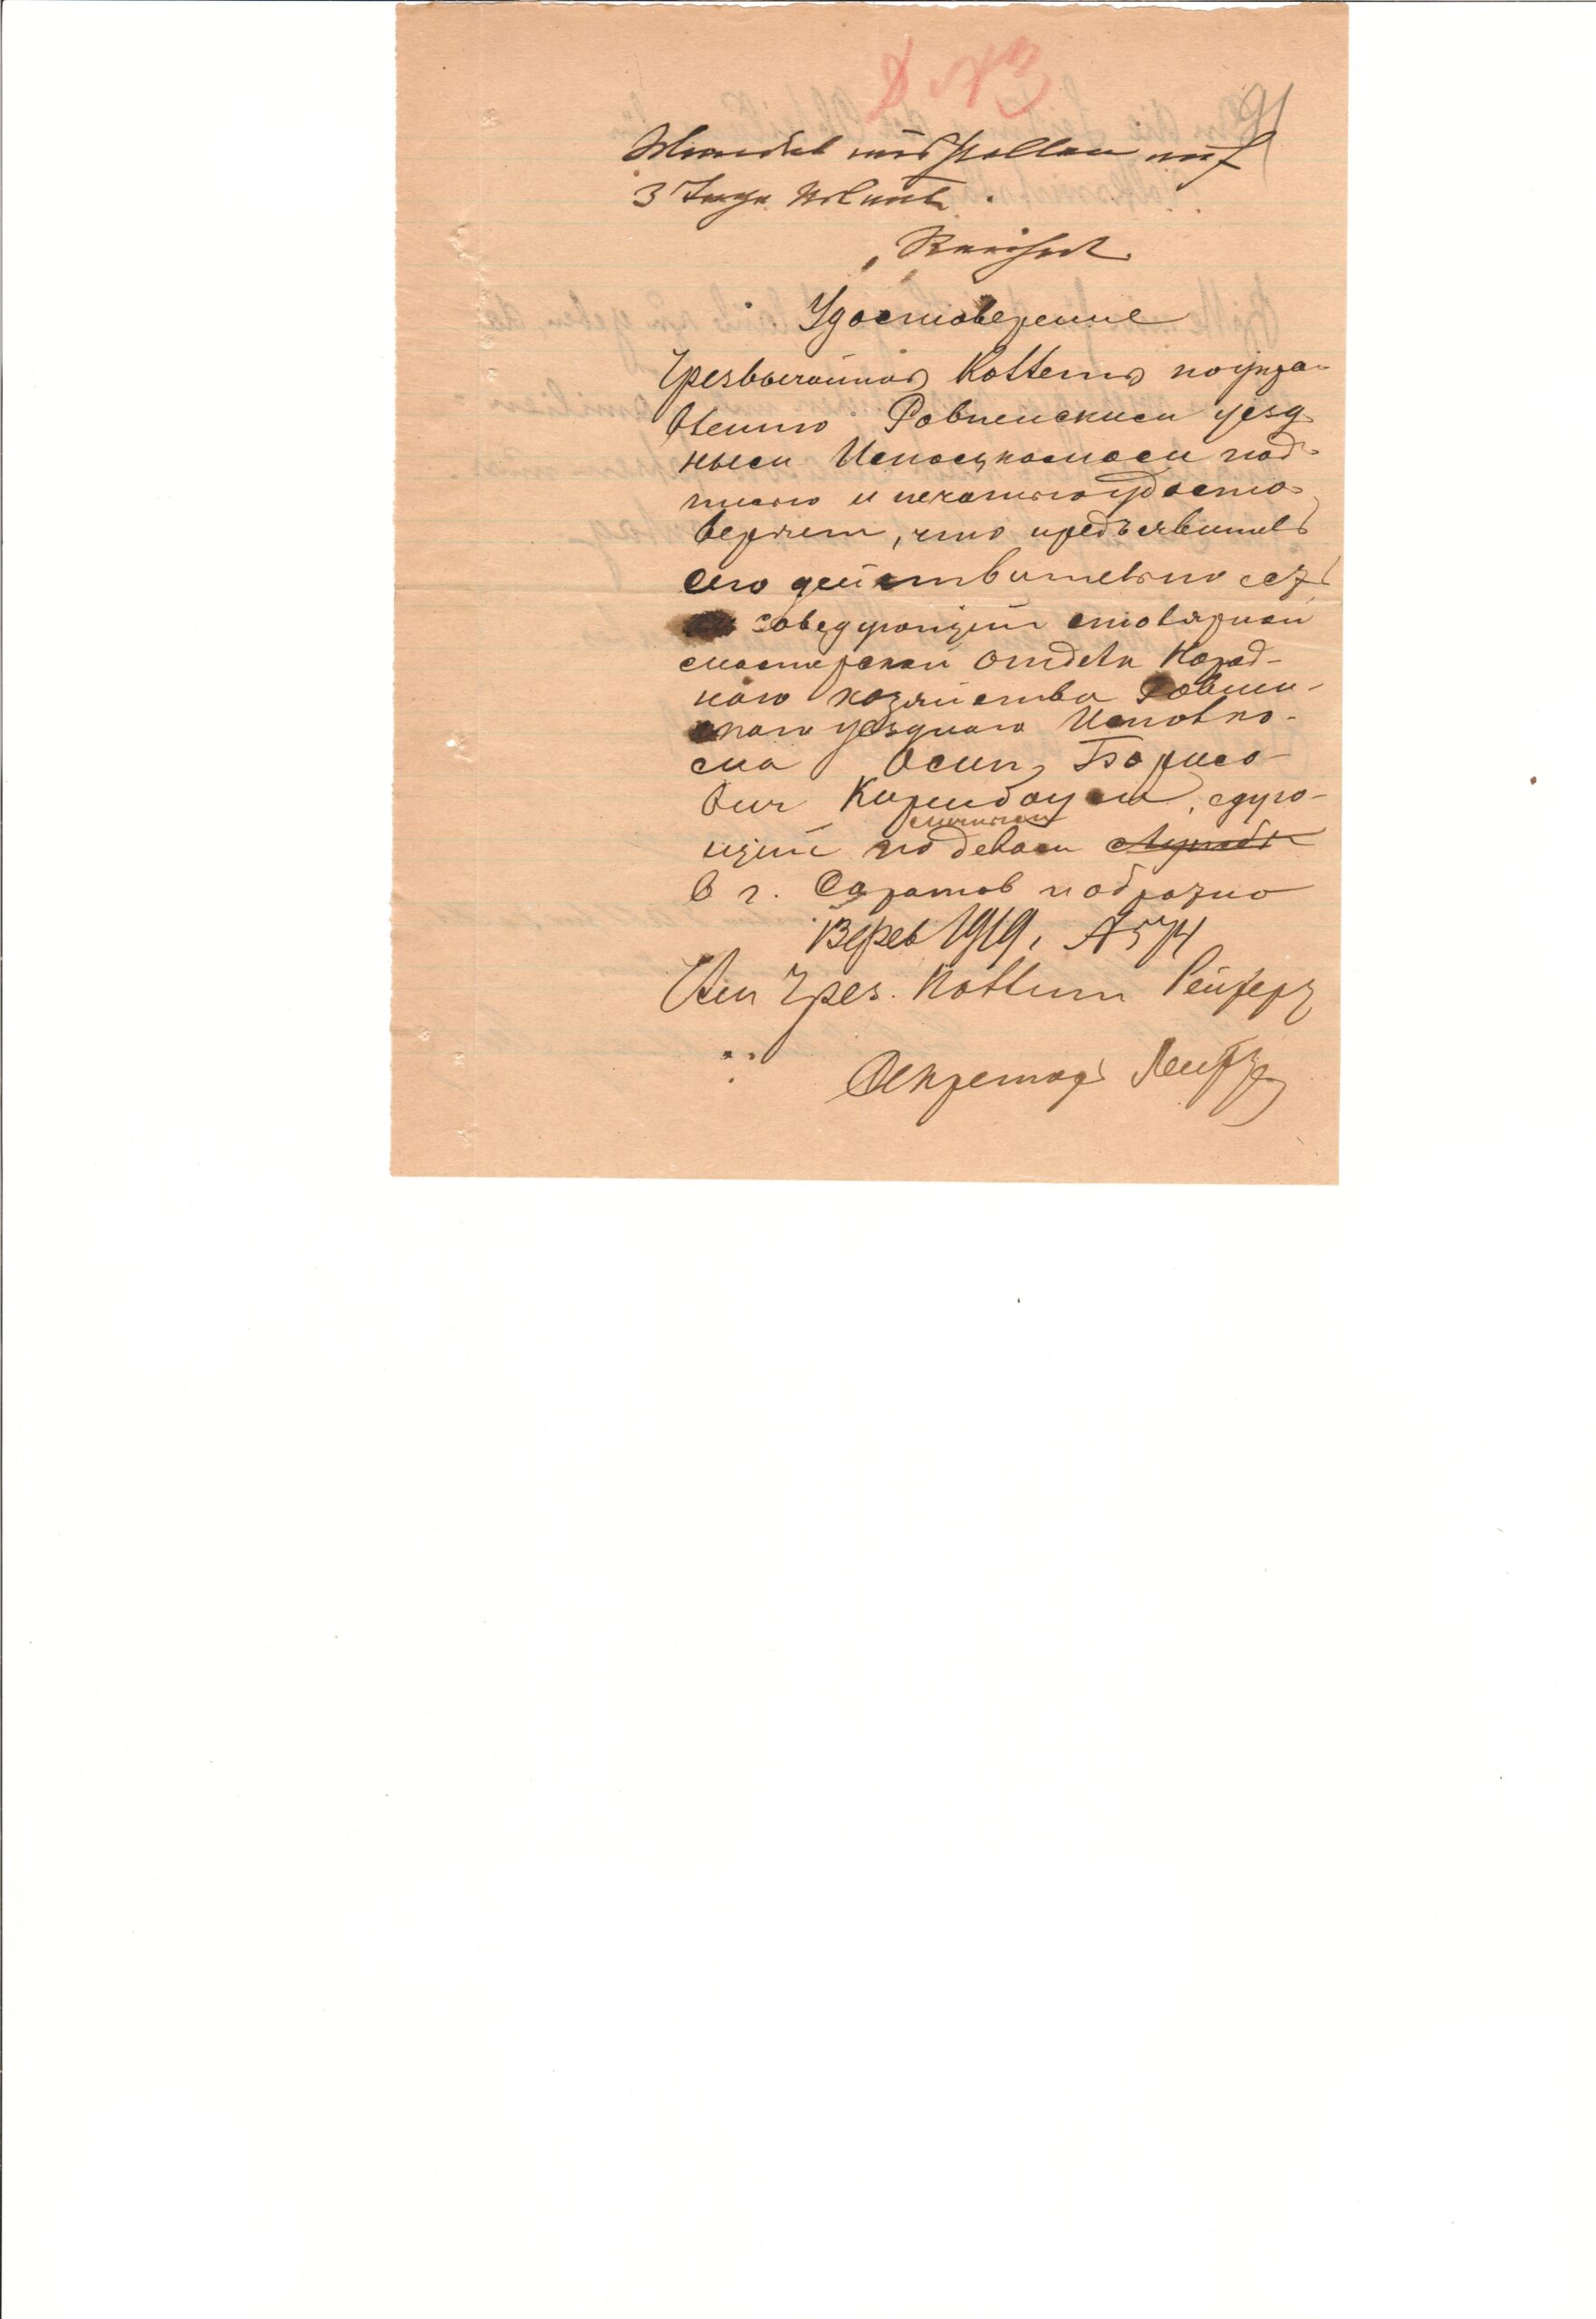 91
auf
3 Tage
Удостоверение
Чрезвычайная Коллегия по управ-
лению Ровненским уезд
ным Исполкомом под-
писью и печатью удосто-
веряет, что предъявитель
сего действительно есть
заведующий столярной
мастерской отдела Народ-
наго хозяйства Ровнен-
скаго уезднаго Исполко-
ма Осип Борисо-
вич Кирибаум, едую-
щий по делам службы
в г. Саратов и обратно
13 фев 1919, № 574
Член Чрез. Коллегии Рейхерт
Секретарь